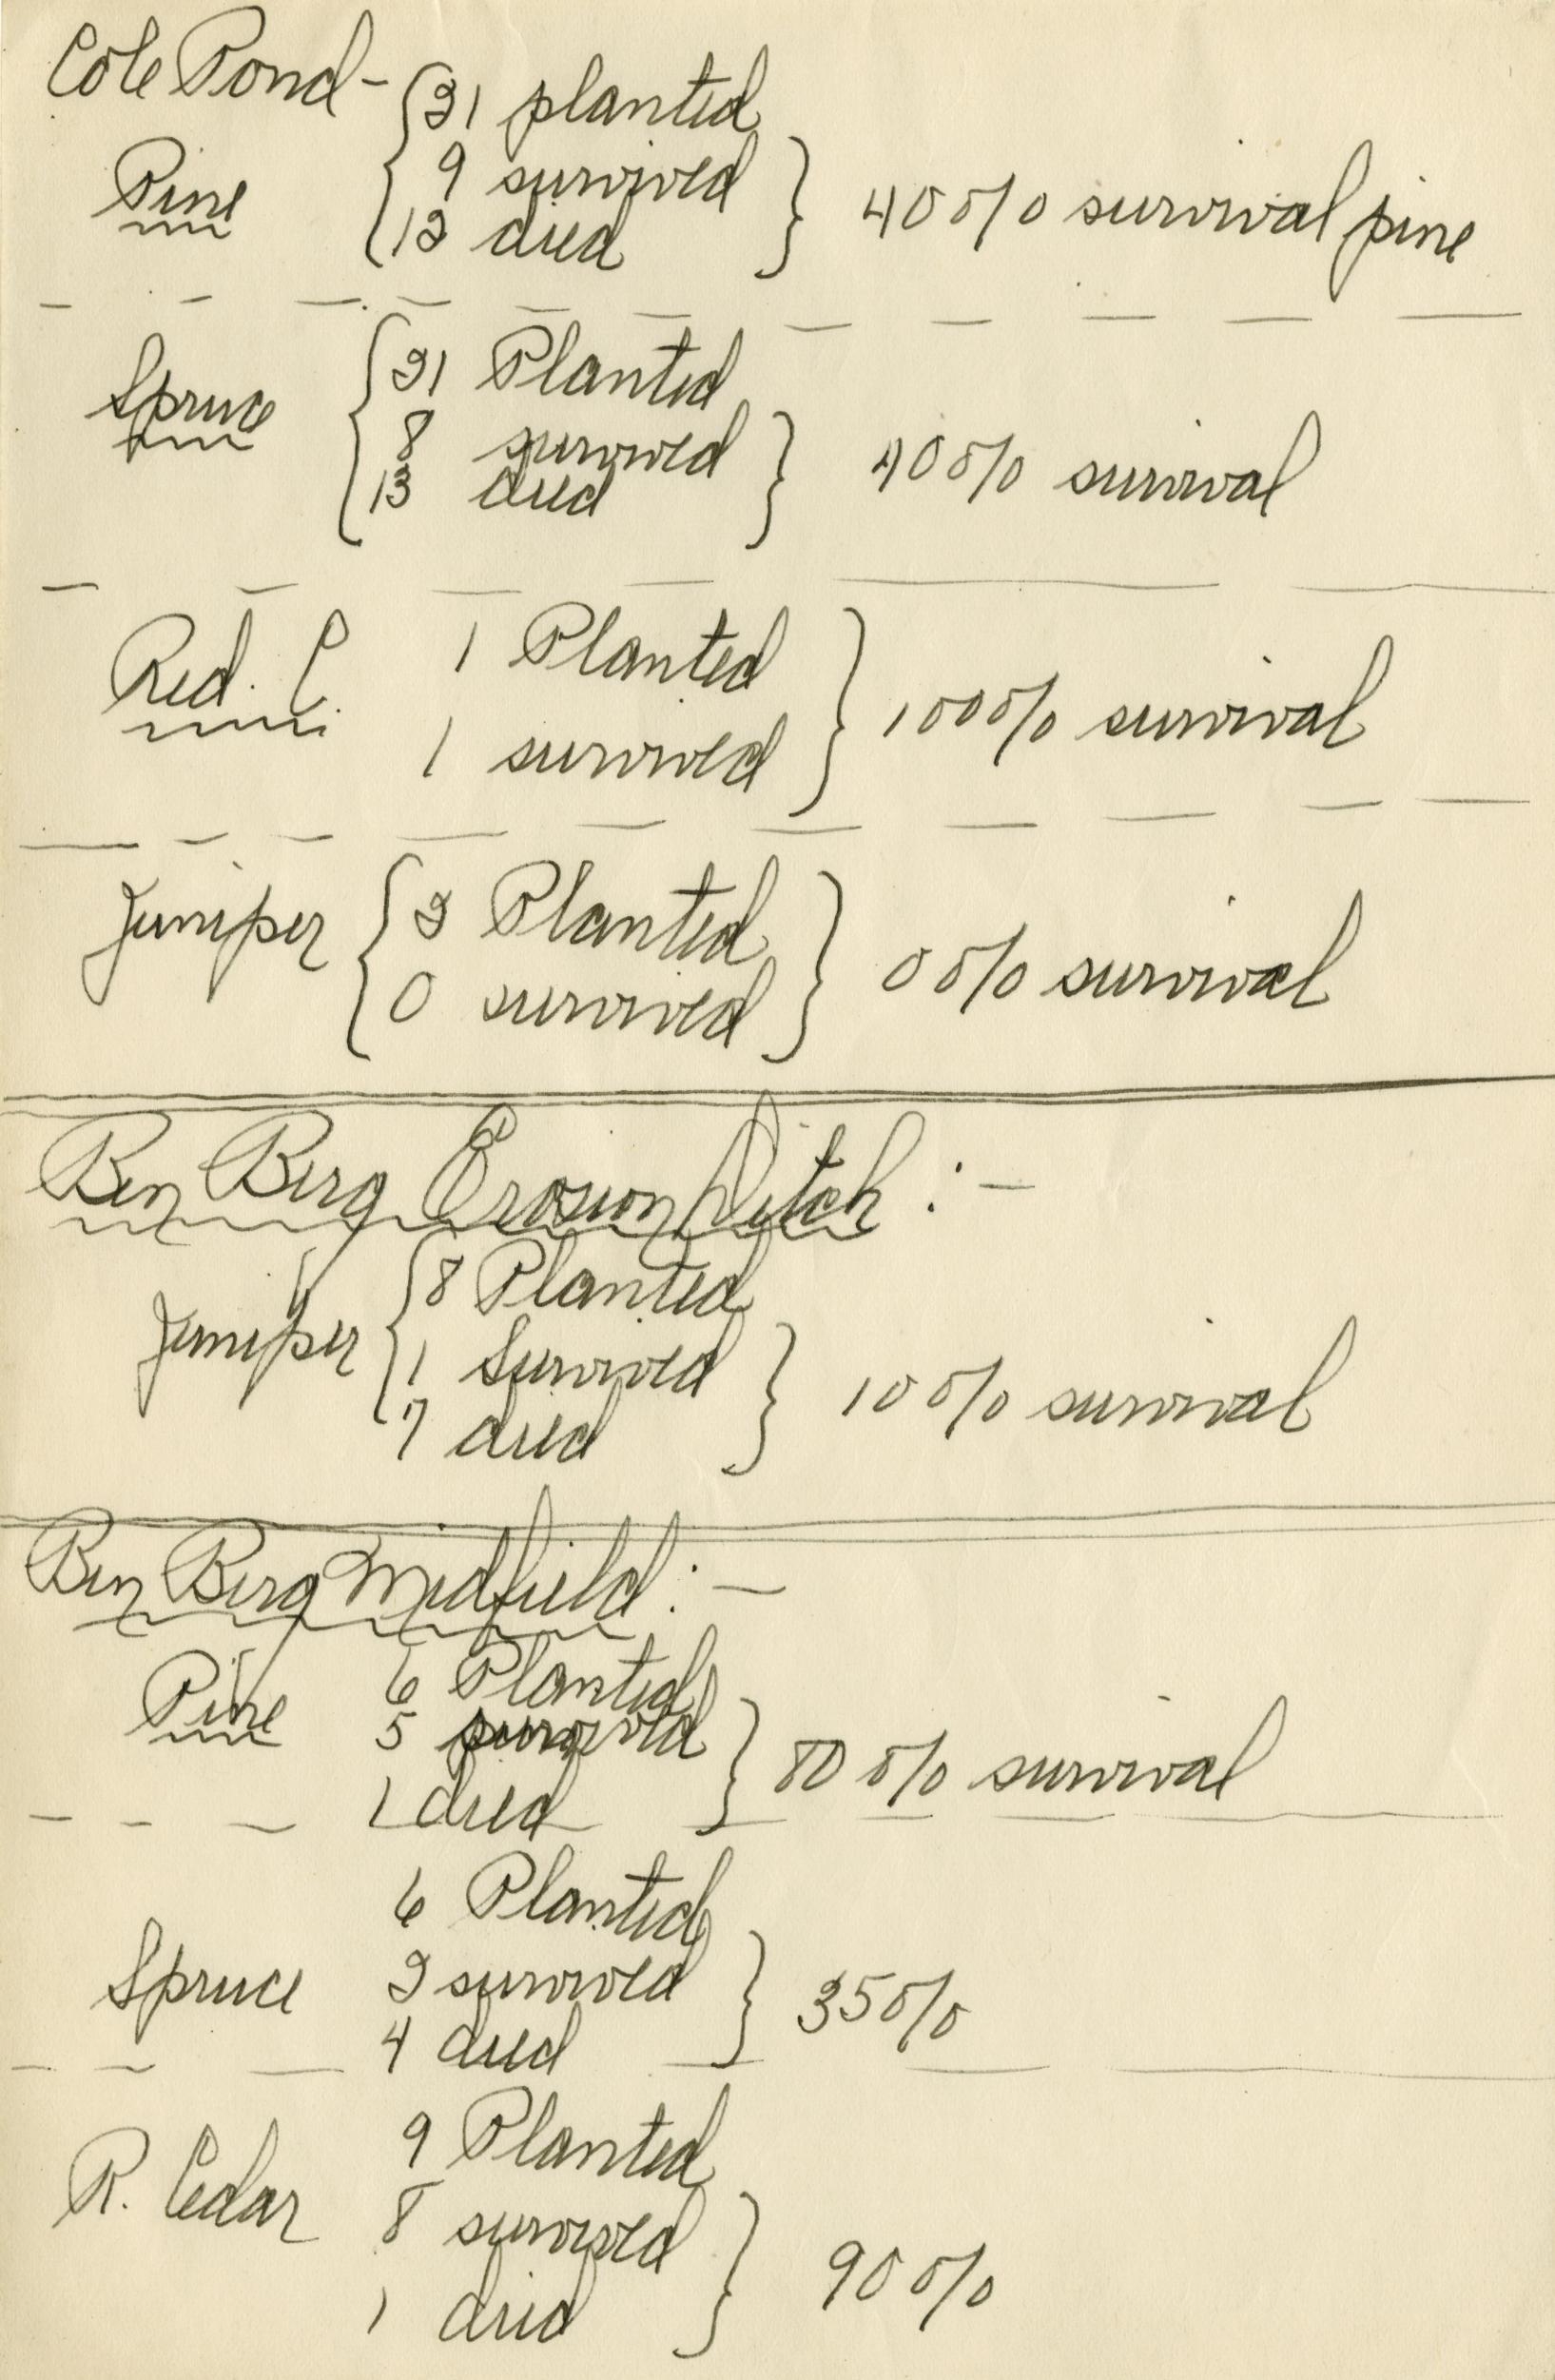 Cole Pond -
Pine { 21 planted
9 survived
12 died } 40% survival pine
Spruce { 21 Planted
8 survived
13 died } 40% survival
Red. C. 1 Planted
1 survived } 100% survival
Juniper { 2 Planted
0 survived } 0% survival
Ben Berg Erosion Ditch :-
Juniper { 8 Planted
1 Survived
7 died } 10% survival
Ben Berg Midfield :-
Pine 6 Planted
5 survived
1 died } 80% survival
6 Planted
Spruce 2 survived
4 died } 35%
9 Planted
R. Cedar 8 survived
1 died } 90%